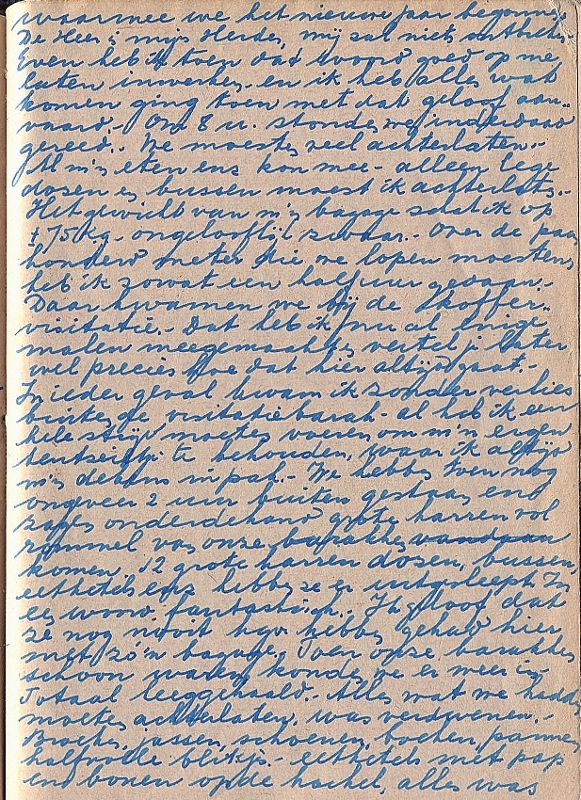 waarmee we het nieuwe jaar begonnen.
De Heer is mijn Herder, mij zal niets ontbreken
Even heb ik toen dat woord goed op me
laten inwerken, en ik heb alles wat
komen ging toen met dat geloof aan-
vaard. - Om 8 u. stonden we inderdaad
gereed. - We moesten veel achterlaten. -
Al m'n eten enz kon mee - alleen lege
dosen en bussen moest ik achterlaten. -
Het gewicht van m'n bagage schat ik op
± 75 Kg. ongelooflijk zwaar. - Over de paar
honderd meter die we lopen moesten
heb ik zowat een half uur gedaan. -
Daar kwamen we bij de koffer-
visitatie. - Dat heb ik nu al enige
malen meegemaakt en vertel je later
wel precies hoe dat hier altijd gaat. -
In ieder geval kwam ik zonder verlies
buiten de visitatiebarak - al heb ik een
hele strijd moeten voeren om m'n eigen
tentzeiltje te behouden, waar ik altijd
m'n dekens in pak. - We hebben toen nog
ongeveer 2 uur buiten gestaan en
zagen onderdehand grote karren vol
rommel van onze barakken vandaan
komen. 12 grote karren dosen, bussen,
eetketels enz hebben ze er uitgesleept. In
een woord fantastisch. - Ik geloof dat
ze nog nooit hebben gehad hier
met zo'n bagage. Toen onze barakken
schoon waren konden we er weer in.
Totaal leeggehaald. Alles wat we hadden
moeten achterlaten, was verdwenen. -
Broeken, jassen, schoenen, boeken, pannen,
halfvolle blikjes - eetketels met pap
en bonen op de kachel, alles was